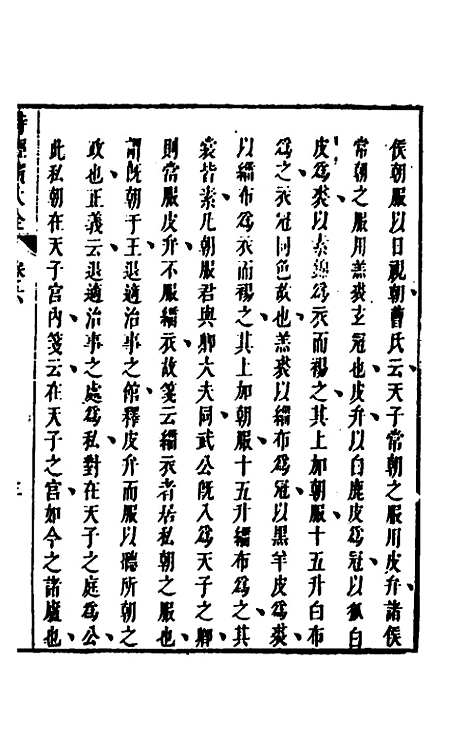 侯朝服以日視朝曹氏云天子常朝之服用皮弁諸侯
常朝之服用羔裘玄冠也皮弁以白鹿皮爲冠以狐白
皮爲裘以素錦爲衣而裼之其上加朝服十五升白布
爲之衣冠同色故也羔裘以緇布爲冠以黑羊皮爲裘
以緇布爲衣而裼之其上加朝服十五升緇布爲之其
裳皆素凡朝服君與卿大夫同武公旣入爲天子之卿
則當服皮弁不服緇衣故箋云緇衣者居私朝之服也
謂旣朝于王退適治事之館釋皮弁而服以聽所朝之
政也正義云退適治事之處爲私對在天子之庭爲公
此私朝在天子宮內箋云在天子之宮如今之諸廬也
詩經廣大全 卷五 三